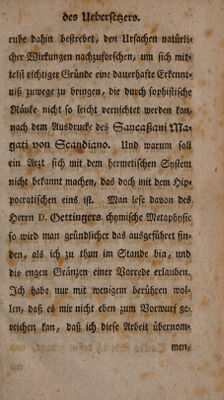 des Uebersetzers.
ruhe dahin bestrebet, den Ursachen natürli-
cher Wirkungen nachzuforschen, um sich mit-
telst richtiger Gründe eine dauerhafte Erkennt-
niß zuwege zu bringen, die durch sophistische
Ränke nicht so leicht vernichtet werden kan,
nach dem Ausdrucke des Sancaßani Ma-
gati von Scandiano. Und warum soll
ein Arzt sich mit dem hermetischen System
nicht bekannt machen, das doch mit dem Hip-
pocratischen eins ist. Man lese davon des
Herrn D. Oettingers chymische Metaphysic
so wird man gründlicher das ausgeführet fin-
den, als ich zu thun im Stande bin, und
die engen Gränzen einer Vorrede erlauben.
Ich habe nur mit wenigem berühren wol-
len, daß es mir nicht eben zum Vorwurf ge-
reichen kan, daß ich diese Arbeit übernom-
men,